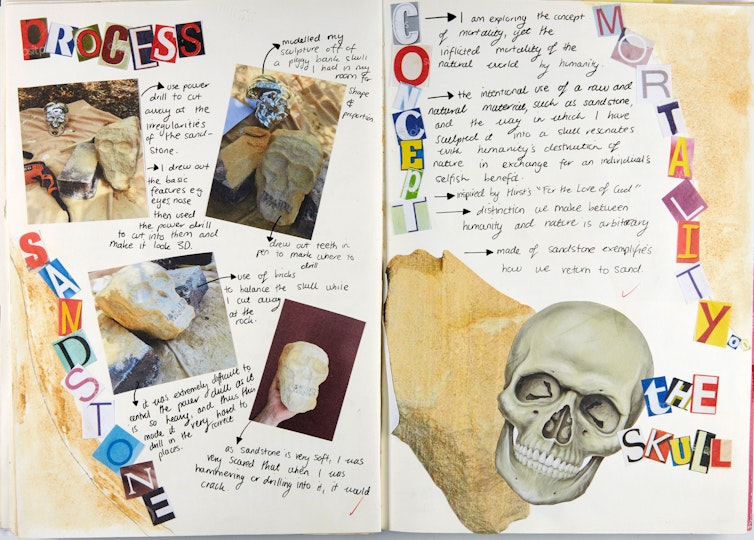 PROCESS
→ modelled my
sculpture off of
a piggy bank skull
I had in my
room for
shape
&
proportion
→ use power
drill to cut
away at the
irregularities
of the sand-
stone.
→ I drew out
the basic
features eg
eyes nose
then used
the power drill
to cut into them and
make it look 3D.
drew out teeth in
pen to mark where to
drill
SANDSTONE
use of bricks
to balance the skull while
I cut away
at the
rock.
it was extremely difficult to
control the power drill as it
is so heavy, and thus this
made it very hard to
drill in the correct
places.
as sandstone is very soft, I was
very scared that when I was
hammering or drilling into it, it would
crack
CONCEPT
→ I am exploring the concept
of mortality, yet the
inflicted mortality of the
natural world by humanity.
→ the intentional use of a raw and
natural material, such as sandstone,
and the way in which I have
sculpted it into a skull resonates
with humanity's destruction of
nature in exchange for an individual's
selfish benefit.
→ inspired by Hirst's "For the Love of God"
→ distinction we make between
humanity and nature is arbitrary
→ made of sandstone exemplifies
how we return to sand.
MORTALITY
THE
SKULL